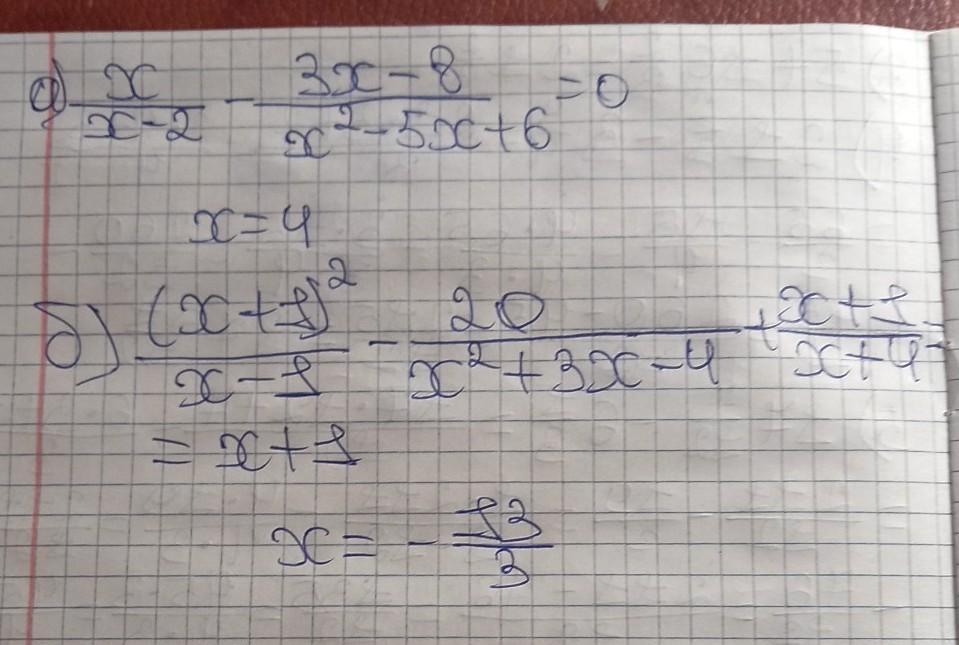 а) x/(x-2) - (3x-8)/(x²-5x+6) = 0
x=4
б) (x+1)²/(x-1) - 20/(x²+3x-4) + (x+1)/(x+4) =
= x+1
x = -13/3